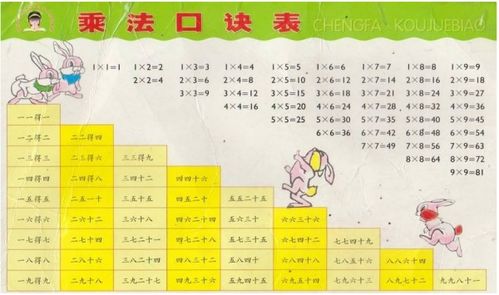 乘法口诀表 CHENGFA · KOUJUEBIAO
1×1=1 1×2=2 1×3=3 1×4=4 1×5=5 1×6=6 1×7=7 1×8=8 1×9=9
2×2=4 2×3=6 2×4=8 2×5=10 2×6=12 2×7=14 2×8=16 2×9=18
3×3=9 3×4=12 3×5=15 3×6=18 3×7=21 3×8=24 3×9=27
4×4=16 4×5=20 4×6=24 4×7=28 4×8=32 4×9=36
5×5=25 5×6=30 5×7=35 5×8=40 5×9=45
6×6=36 6×7=42 6×8=48 6×9=54
7×7=49 7×8=56 7×9=63
8×8=64 8×9=72
9×9=81
一一得一
一二得二 二二得四
一三得三 二三得六 三三得九
一四得四 二四得八 三四十二 四四十六
一五得五 二五一十 三五十五 四五二十 五五二十五
一六得六 二六十二 三六十八 四六二十四 五六三十 六六三十六
一七得七 二七十四 三七二十一 四七二十八 五七三十五 六七四十二 七七四十九
一八得八 二八十六 三八二十四 四八三十二 五八四十 六八四十八 七八五十六 八八六十四
一九得九 二九十八 三九二十七 四九三十六 五九四十五 六九五十四 七九六十三 八九七十二 九九八十一